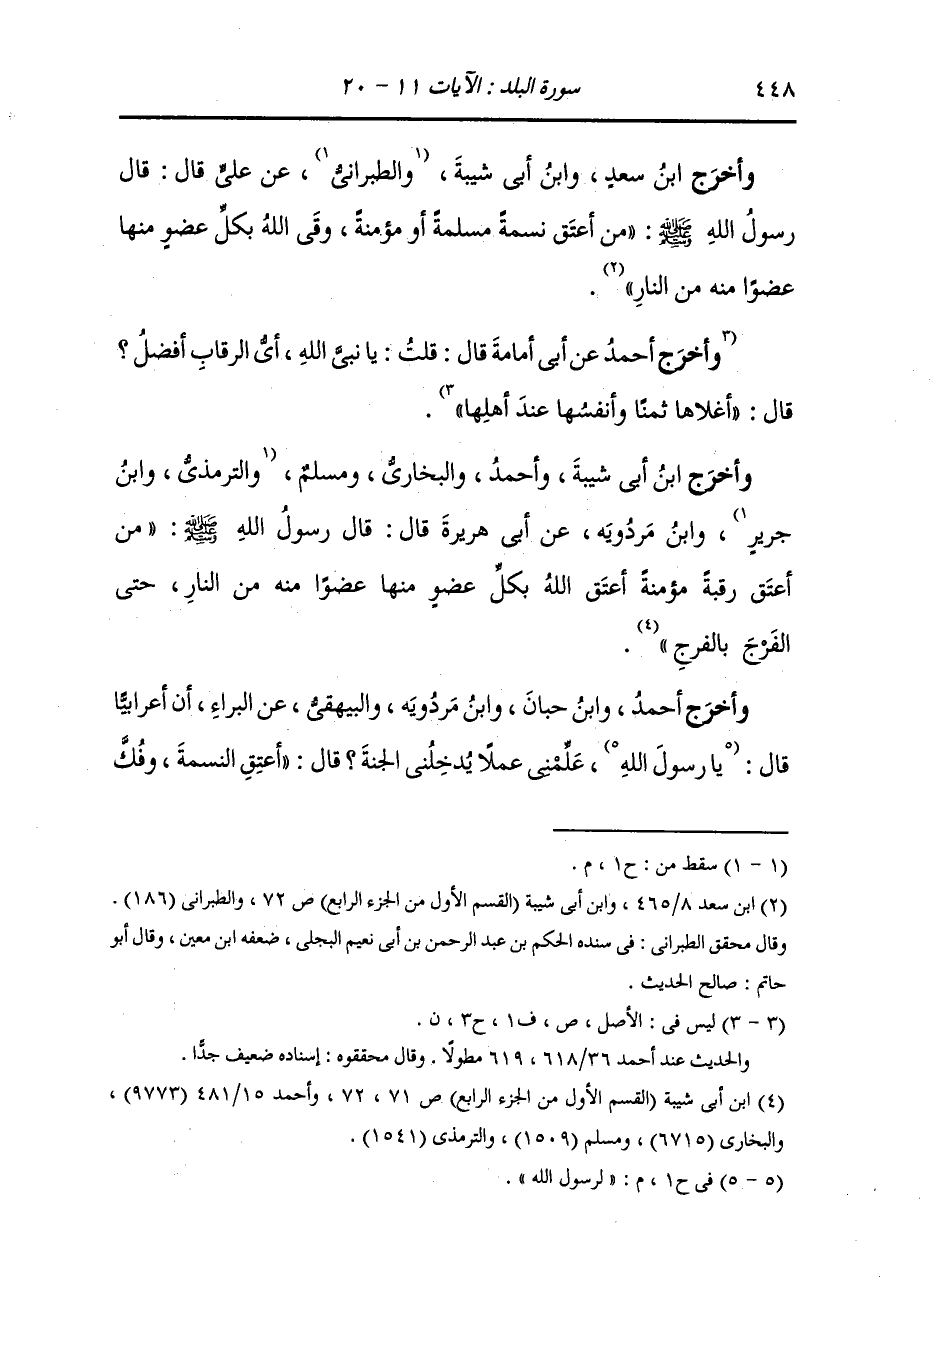 ٤٤٨ سورة البلد : الآيات ١١ - ٢٠
وأخرَج ابنُ سعدٍ ، وابنُ أبى شيبةَ ، (١والطبرانىُّ١) ، عن علىٍّ قال : قال
رسولُ اللهِ ﷺ : «من أعتَق نسمةً مسلمةً أو مؤمنةً ، وقَى اللهُ بكلِّ عضوٍ منها
عضوًا منه من النارِ»(٢) .
(٣وأخرَج أحمدُ عن أبى أمامةَ قال : قلتُ : يا نبىَّ اللهِ ، أىُّ الرقابِ أفضلُ ؟
قال : «أغلاها ثمنًا وأنفسُها عندَ أهلِها»٣) .
وأخرَج ابنُ أبى شيبةَ ، وأحمدُ ، والبخارىُّ ، ومسلمٌ ، (١والترمذىُّ ، وابنُ
جريرٍ١) ، وابنُ مَردُويَه ، عن أبى هريرةَ قال : قال رسولُ اللهِ ﷺ : «من
أعتَق رقبةً مؤمنةً أعتَق اللهُ بكلِّ عضوٍ منها عضوًا منه من النارِ ، حتى
الفَرْجَ بالفرجِ»(٤) .
وأخرَج أحمدُ ، وابنُ حبانَ ، وابنُ مَردُويَه ، والبيهقىُّ ، عن البراءِ ، أن أعرابيًّا
قال : (٥يا رسولَ اللهِ٥) ، عَلِّمْنِى عملًا يُدخِلُنى الجنةَ ؟ قال : «أعتِقِ النسمةَ ، وفُكَّ
(١ - ١) سقط من : ح١ ، م .
(٢) ابن سعد ٤٦٥/٨ ، وابن أبى شيبة (القسم الأول من الجزء الرابع) ص ٧٢ ، والطبرانى (١٨٦) .
وقال محقق الطبرانى : فى سنده الحكم بن عبد الرحمن بن أبى نعيم البجلى ، ضعفه ابن معين ، وقال أبو
حاتم : صالح الحديث .
(٣ - ٣) ليس فى : الأصل ، ص ، ف١ ، ح٣ ، ن .
والحديث عند أحمد ٦١٨/٣٦ ، ٦١٩ مطولًا . وقال محققوه : إسناده ضعيف جدًّا .
(٤) ابن أبى شيبة (القسم الأول من الجزء الرابع) ص ٧١ ، ٧٢ ، وأحمد ٤٨١/١٥ (٩٧٧٣) ،
والبخارى (٦٧١٥) ، ومسلم (١٥٠٩) ، والترمذى (١٥٤١) .
(٥ - ٥) فى ح١ ، م : «لرسول الله» .